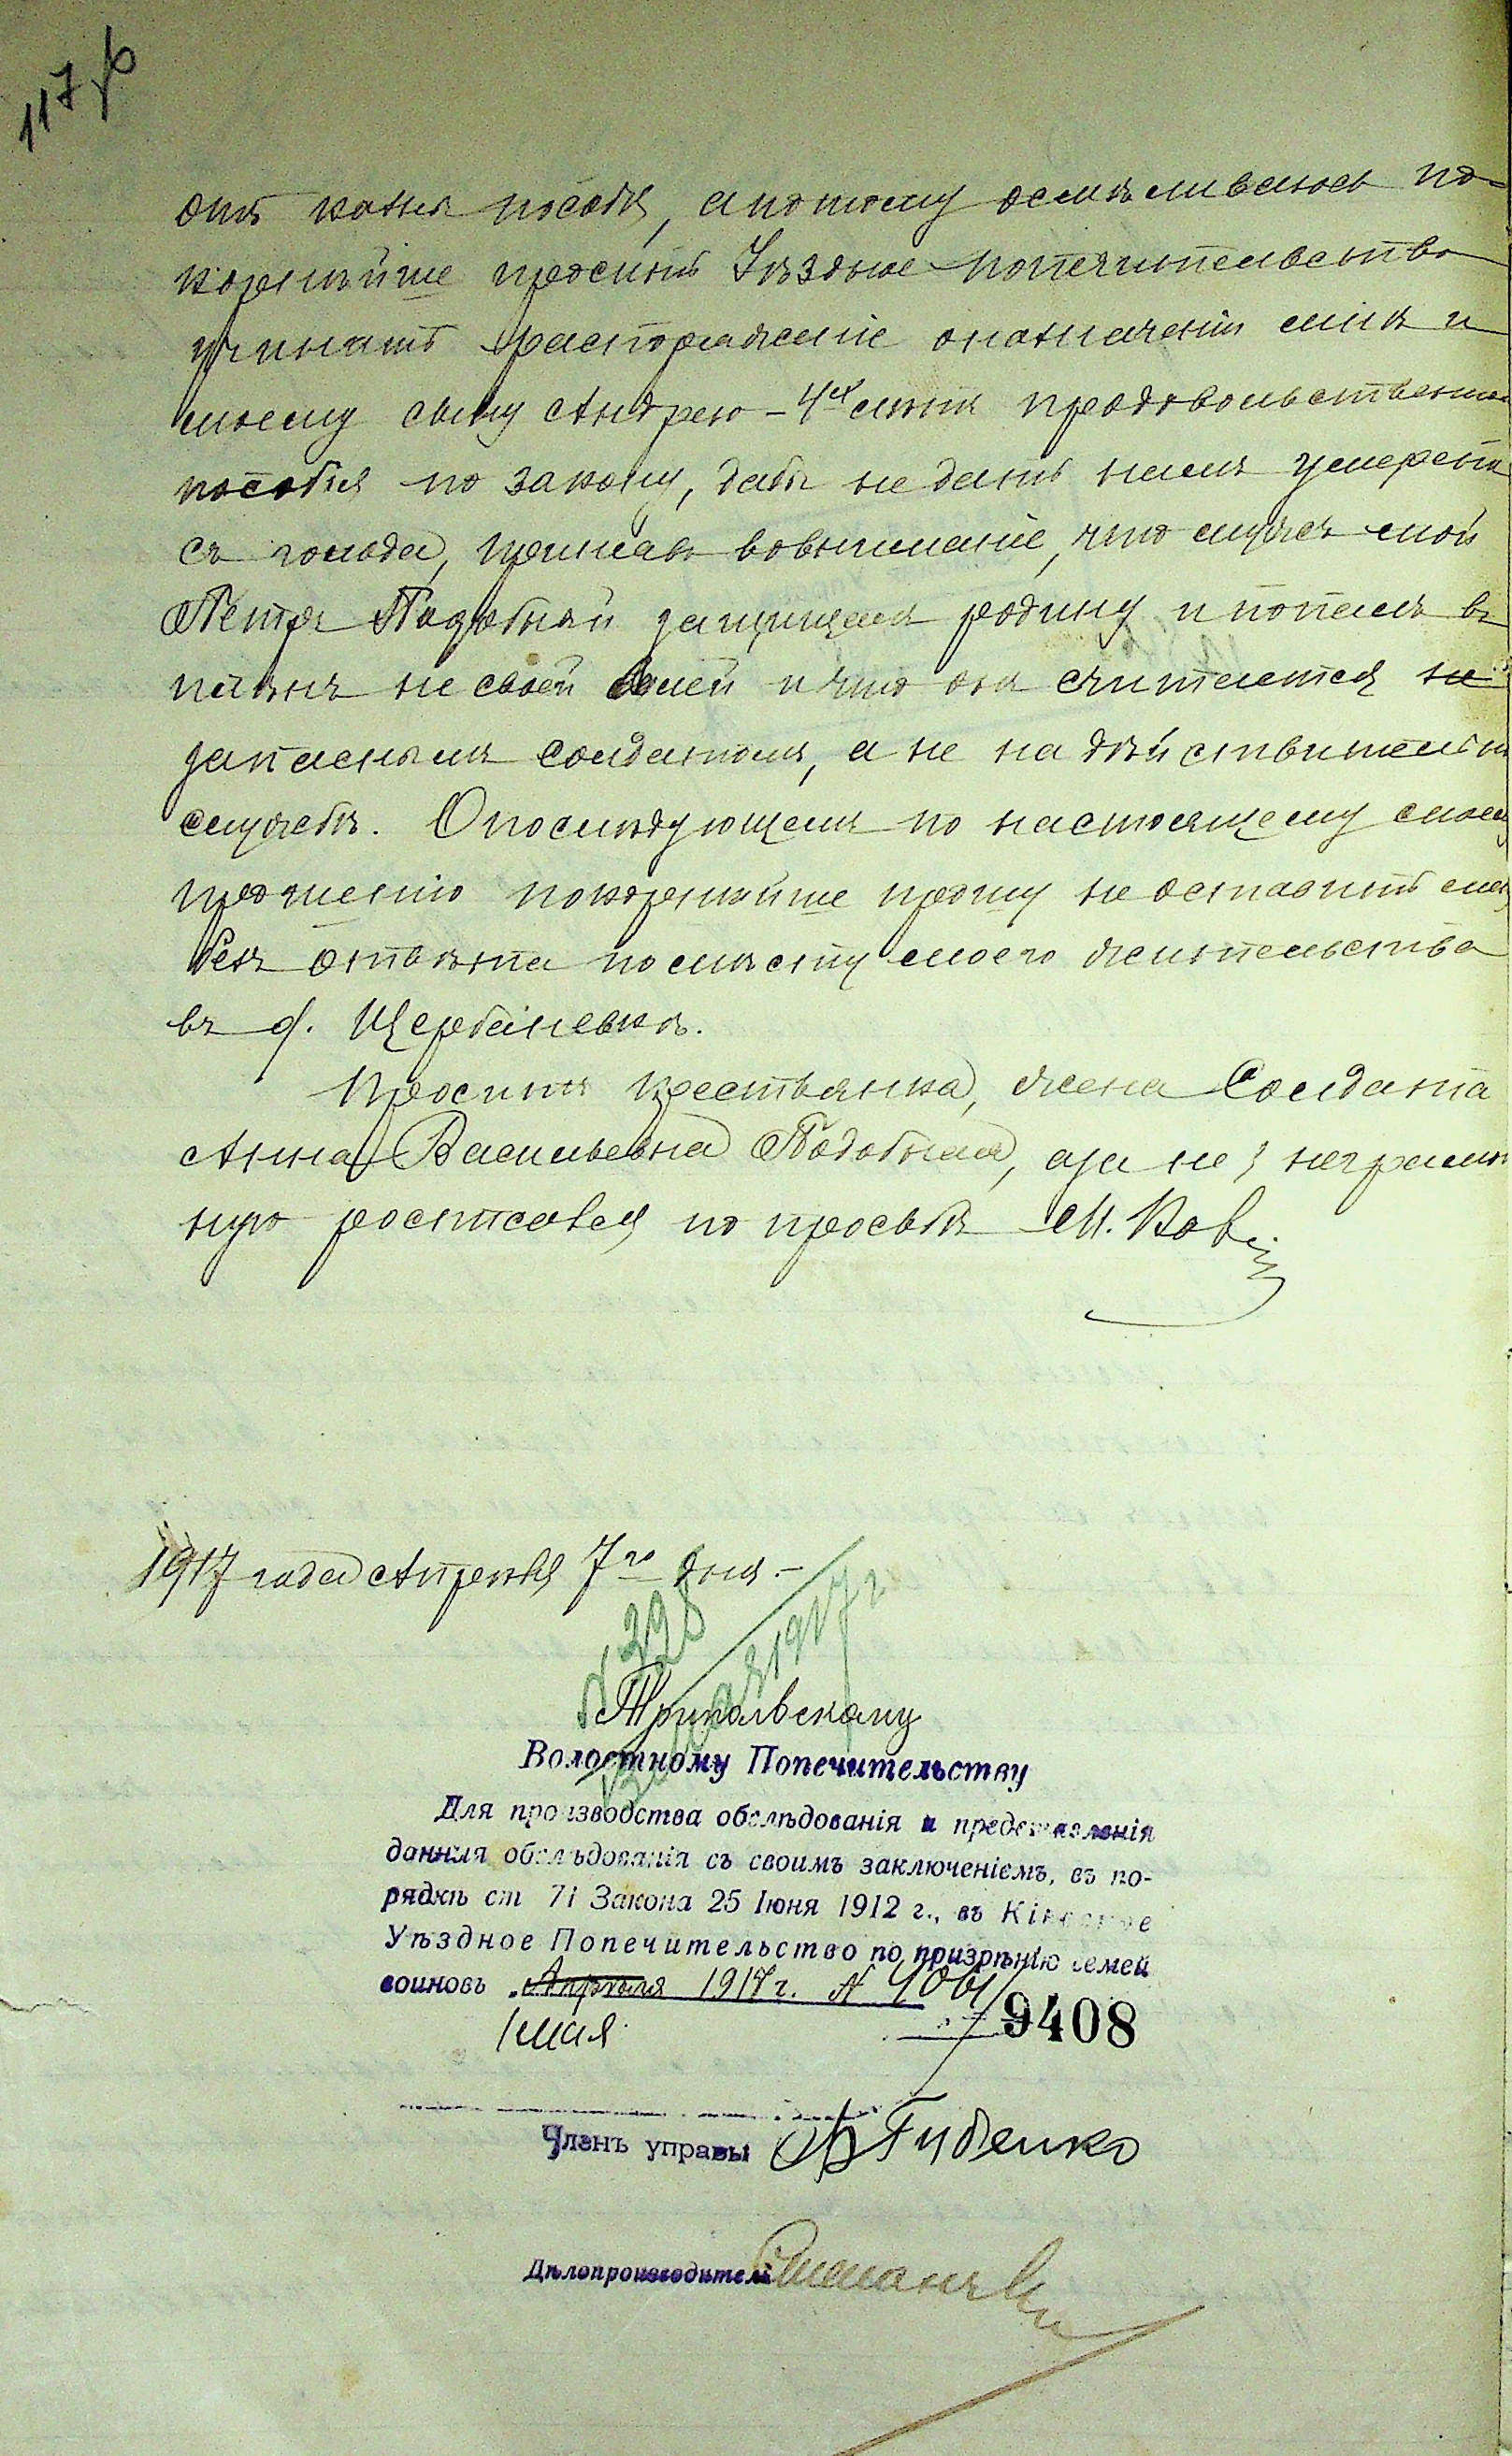 117 об
отъ казны пособія, а потому осмѣливаюсь по-
корнѣйше просить Уѣздное Попечительство
учинить распоряженіе о назначеніи мнѣ и
моему сыну Андрею - 4х продовольственно
пособія по закону, дабы не дать намъ умереть
съ голода, принявъ во вниманіе, что мужъ мой
Петръ Подобный защищалъ родину и попалъ въ
плѣнъ не своей волей и что онъ считается не
запаснымъ солдатомъ, а не на дѣйствительн
службѣ. О послѣдующемъ по настоящему моему
прошенію покорнѣйше прошу не оставить меня
безъ отвѣта по мѣсту моего жительства
въ д. Щербаневкѣ.
Проситъ крестьянка, жена Солдата
Анна Васильевна Подобная, а за нее неграмот
ную росписался по просьбѣ М.
1917 года Апрѣля 7го дня.-
№ 398
1917 г
Трипольскому
Волостному Попечительству
Для производства обслѣдованія и представленія
данныя обслѣдованія съ своимъ заключеніемъ, въ по-
рядкѣ ст 71 Закона 25 Іюня 1912 г., въ Кіевское
Уѣздное Попечительство по призрѣнію семей
воиновъ „Апрѣля 1917 г. №
9408
1 мая
Членъ управы Губенко
Дѣлопроизводитель